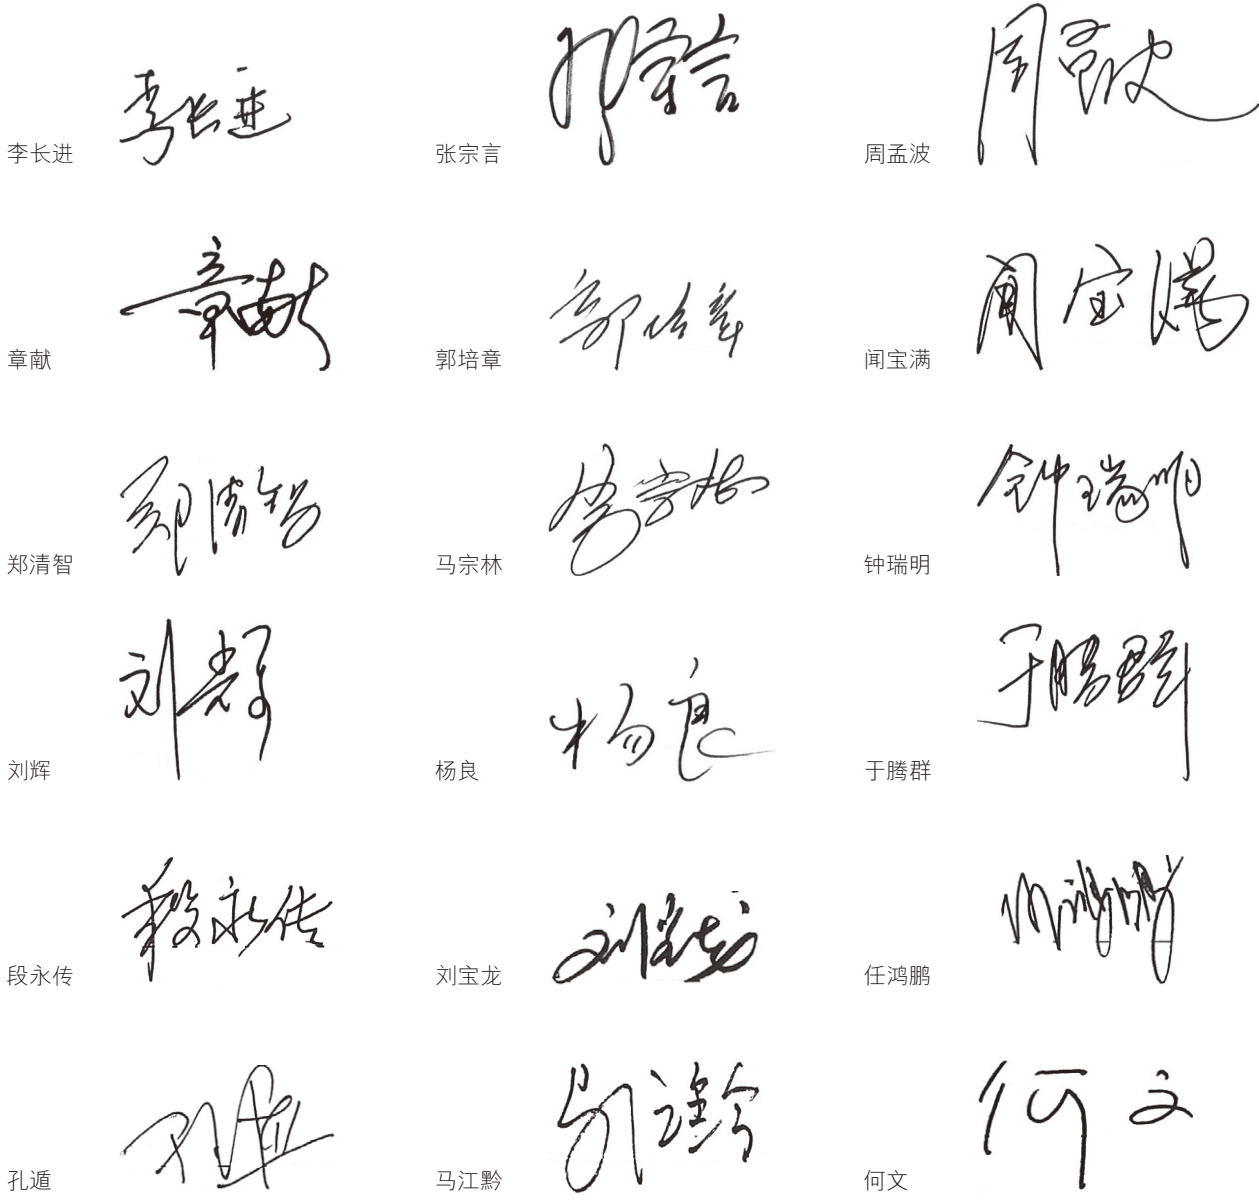 李长进 李长进 张宗言 张宗言 周孟波 周孟波
章献 章献 郭培章 郭培章 闻宝满 闻宝满
郑清智 郑清智 马宗林 马宗林 钟瑞明 钟瑞明
刘辉 刘辉 杨良 杨良 于腾群 于腾群
段永传 段永传 刘宝龙 刘宝龙 任鸿鹏 任鸿鹏
孔遁 孔遁 马江黔 马江黔 何文 何文